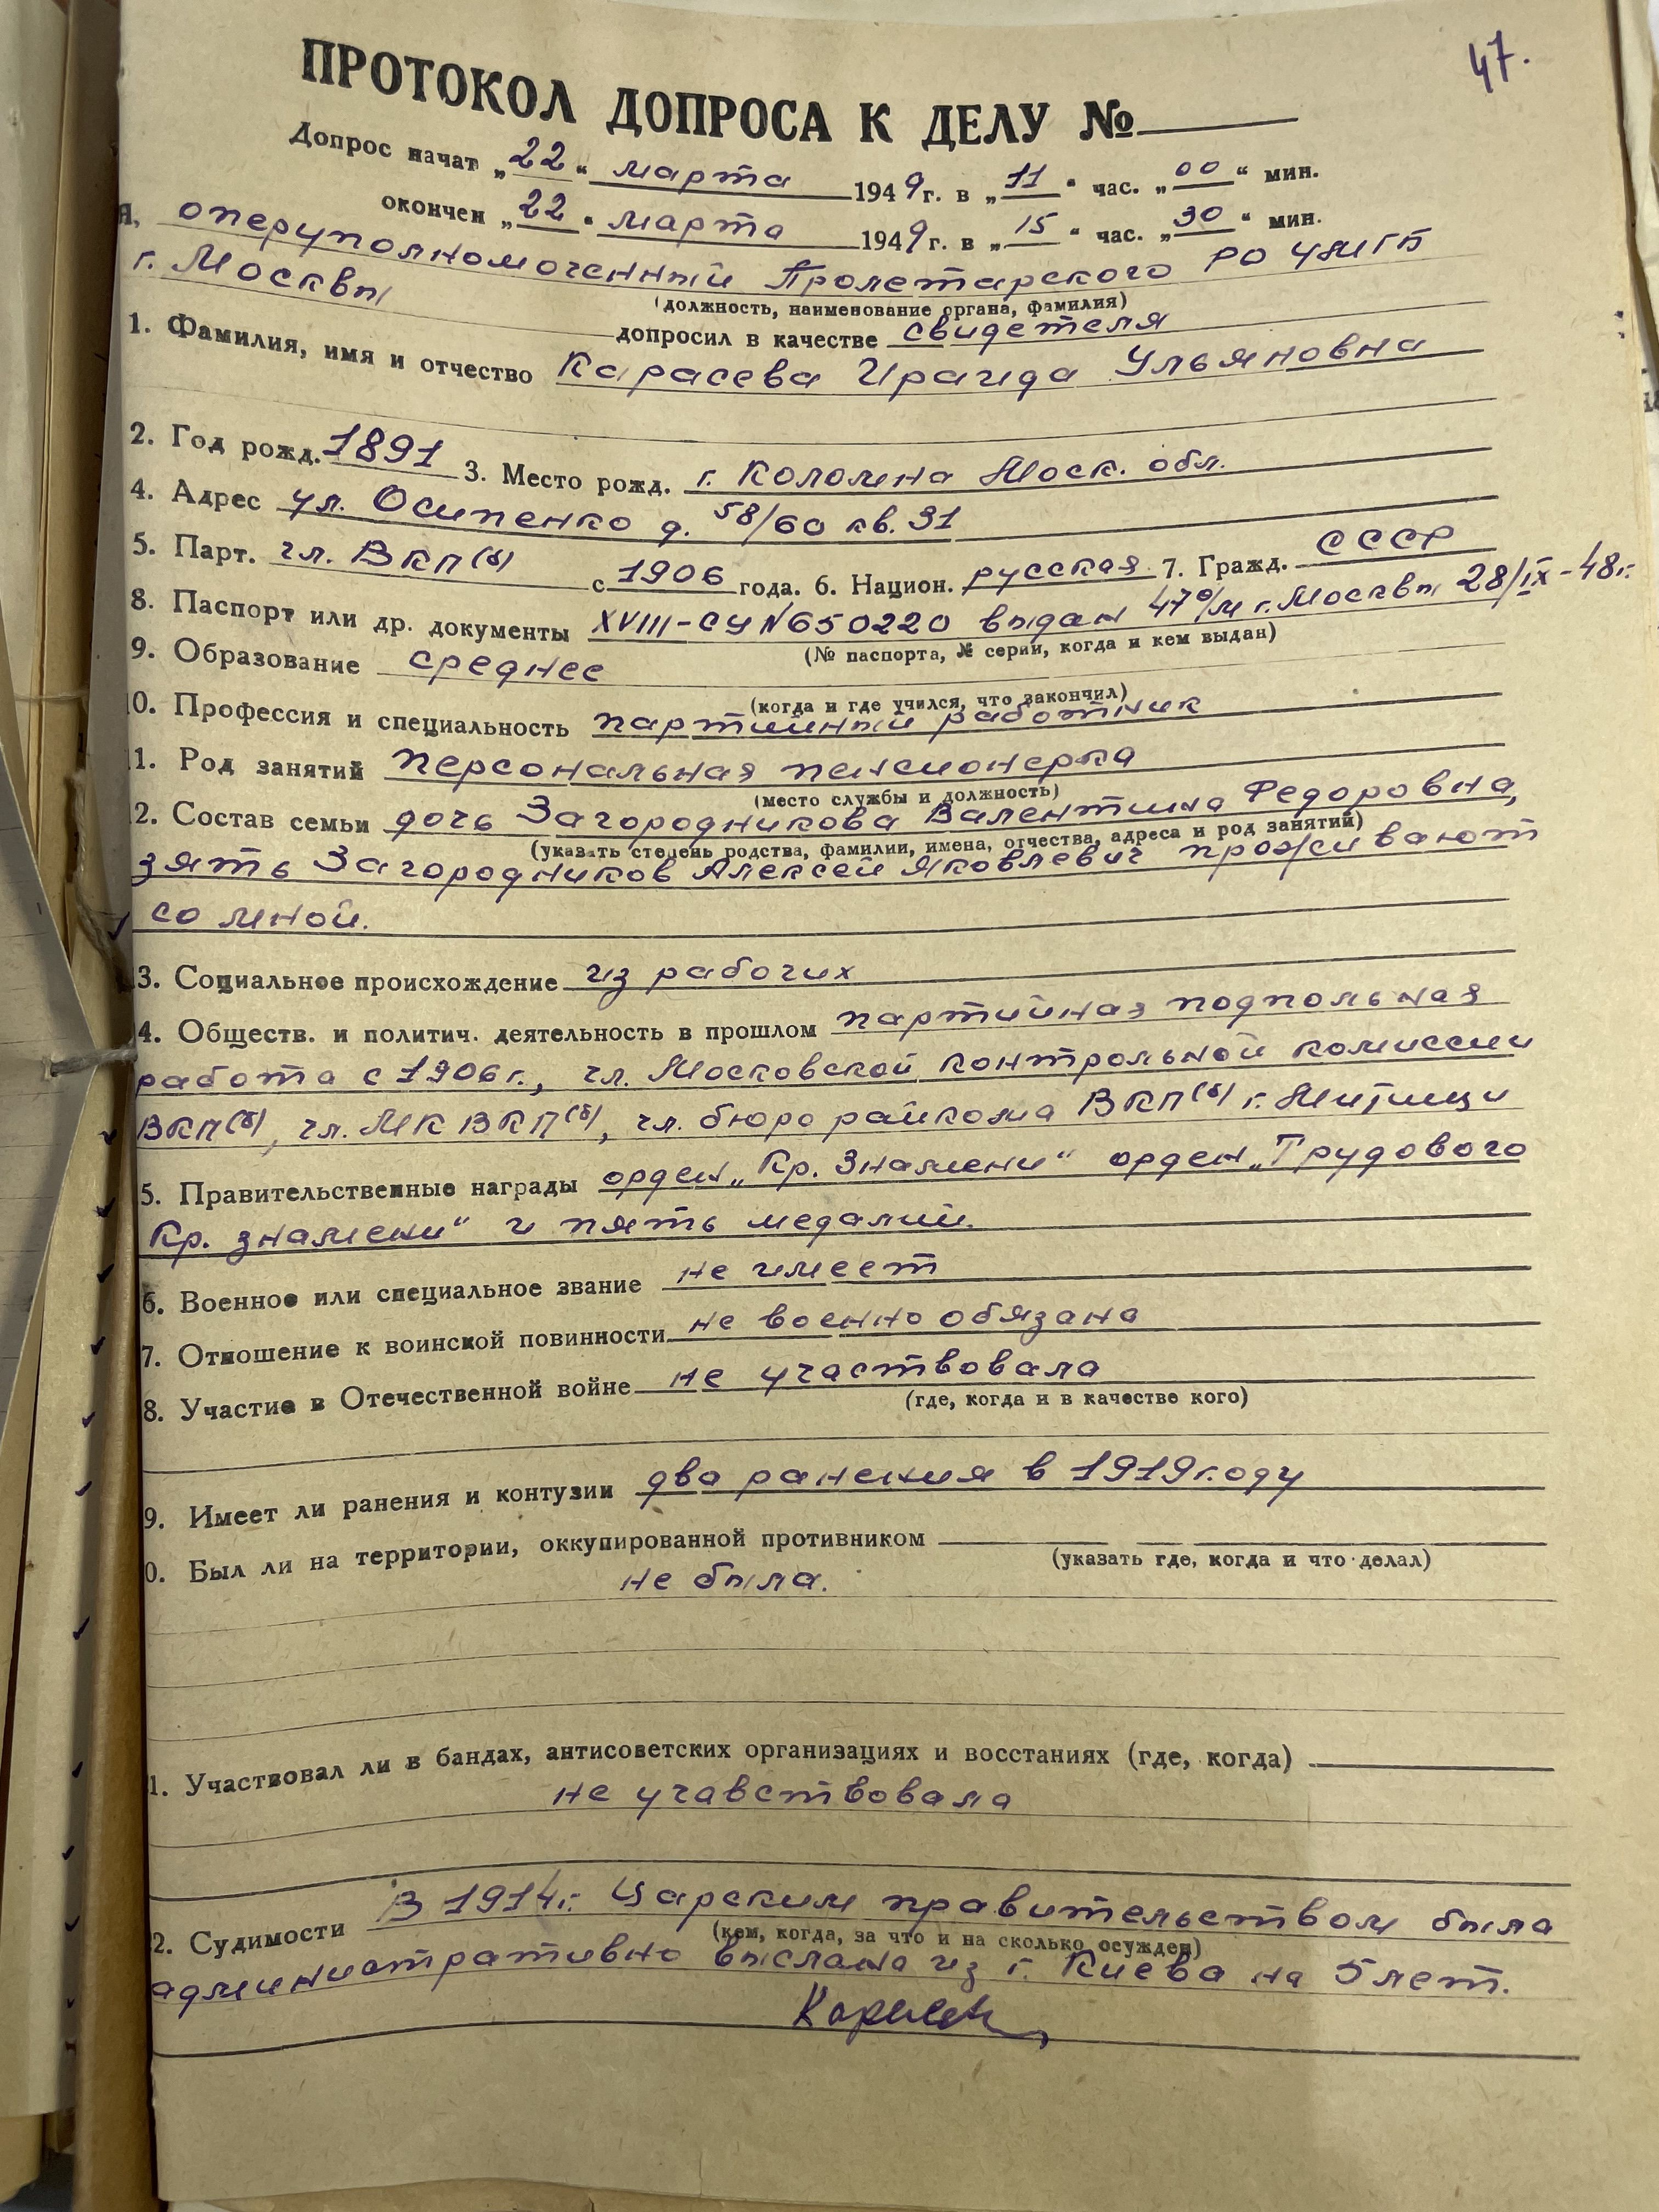 47.
ПРОТОКОЛ ДОПРОСА К ДЕЛУ №
Допрос начат „22“ марта 1949 г. в „11“ час. „00“ мин.
окончен „22“ марта 1949 г. в „15“ час. „30“ мин.
Я, оперуполномоченный Пролетарского РО УМГБ
г. Москвы
(должность, наименование органа, фамилия)
допросил в качестве свидетеля
1. Фамилия, имя и отчество Карасева Ираида Ульяновна
2. Год рожд. 1891 3. Место рожд. г. Коломна Моск. обл.
4. Адрес ул. Осипенко д. 58/60 кв. 31
5. Парт. чл. ВКП(б) с 1906 года. 6. Национ. русская 7. Гражд. СССР
8. Паспорт или др. документы XVIII-СУ №650220 выдан 47 о/м г. Москвы 28/IX-48г.
(№ паспорта, № серии, когда и кем выдан)
9. Образование среднее
(когда и где учился, что закончил)
10. Профессия и специальность партийный работник
11. Род занятий персональная пенсионерка
(место службы и должность)
12. Состав семьи дочь Загородникова Валентина Федоровна,
(указать степень родства, фамилии, имена, отчества, адреса и род занятий)
зять Загородников Алексей Яковлевич проживают
со мной.
13. Социальное происхождение из рабочих
14. Обществ. и политич. деятельность в прошлом партийная подпольная
работа с 1906г., чл. Московской контрольной комиссии
ВКП(б), чл. МК ВКП(б), чл. бюро райкома ВКП(б) г. Мытищи
15. Правительственные награды орден „Кр. Знамени“ орден „Трудового
Кр. знамени“ и пять медалий.
6. Военное или специальное звание не имеет
7. Отношение к воинской повинности не военно обязана
8. Участие в Отечественной войне не участвовала
(где, когда и в качестве кого)
9. Имеет ли ранения и контузии два ранения в 1919 году
0. Был ли на территории, оккупированной противником
(указать где, когда и что делал)
не была.
1. Участвовал ли в бандах, антисоветских организациях и восстаниях (где, когда)
не учавствовала
2. Судимости В 1914г. Царским правительством была
(кем, когда, за что и на сколько осужден)
административно выслана из г. Киева на 5 лет.